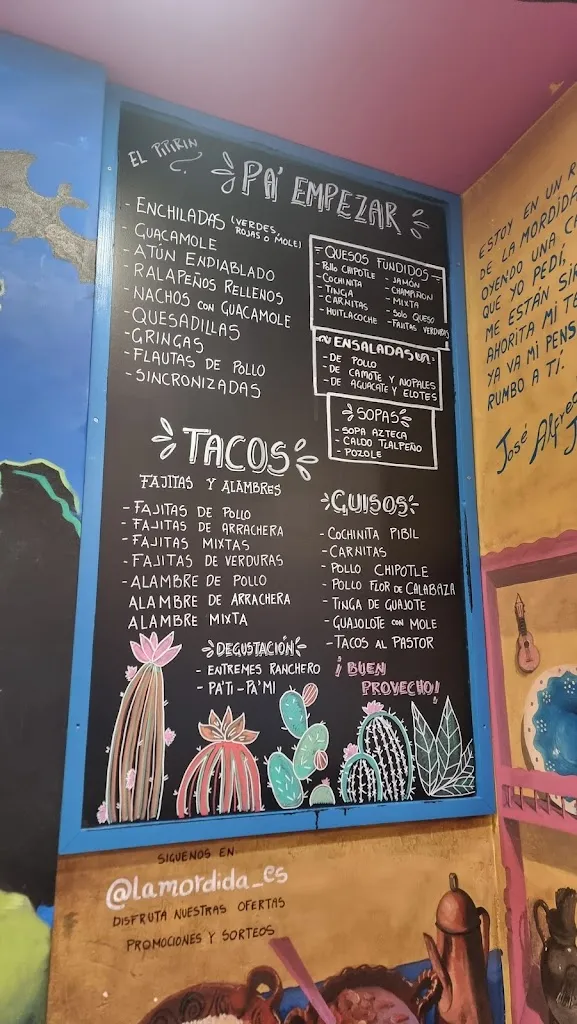 EL PIPIRIN
PA' EMPEZAR
- ENCHILADAS (VERDES, ROJAS O MOLE)
- GUACAMOLE
- ATÚN ENDIABLADO
- RALAPEÑOS RELLENOS
- NACHOS CON GUACAMOLE
- QUESADILLAS
- GRINGAS
- FLAUTAS DE POLLO
- SINCRONIZADAS
QUESOS FUNDIDOS
- POLLO CHIPOTLE
- COCHINITA
- TINGA
- CARNITAS
- HUITLACOCHE
- JAMÓN
- CHAMPIÑON
- MIXTA
- SOLO QUESO
- FAJITAS VERDURAS
ENSALADAS
- DE POLLO
- DE CAMOTE Y NOPALES
- DE AGUACATE Y ELOTES
SOPAS
- SOPA AZTECA
- CALDO TLALPEÑO
- POZOLE
TACOS
FAJITAS Y ALAMBRES
- FAJITAS DE POLLO
- FAJITAS DE ARRACHERA
- FAJITAS MIXTAS
- FAJITAS DE VERDURAS
- ALAMBRE DE POLLO
ALAMBRE DE ARRACHERA
ALAMBRE MIXTA
GUISOS
- COCHINITA PIBIL
- CARNITAS
- POLLO CHIPOTLE
- POLLO FLOR DE CALABAZA
- TINGA DE GUAJOTE
- GUAJOLOTE CON MOLE
- TACOS AL PASTOR
DEGUSTACIÓN
- ENTREMES RANCHERO
- PA'TI - PA'MI
¡BUEN
PROVECHO!
SIGUENOS EN
@lamordida_es
DISFRUTA NUESTRAS OFERTAS
PROMOCIONES Y SORTEOS
ESTOY EN UN
DE LA MORDIDA
OYENDO UNA
QUE YO PEDÍ,
ME ESTÁN
AHORITA MI
YA VA MI
RUMBO A TÍ.
José